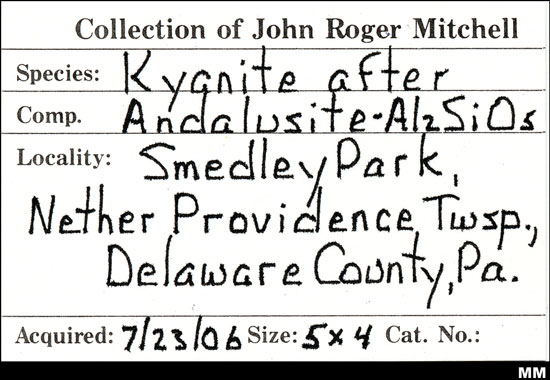 Collection of John Roger Mitchell
Species: Kyanite after
Comp. Andalusite-Al2SiO5
Locality: Smedley Park,
Nether Providence Twsp.,
Delaware County, Pa.
Acquired: 7/23/06 Size: 5x4 Cat. No.:
MM